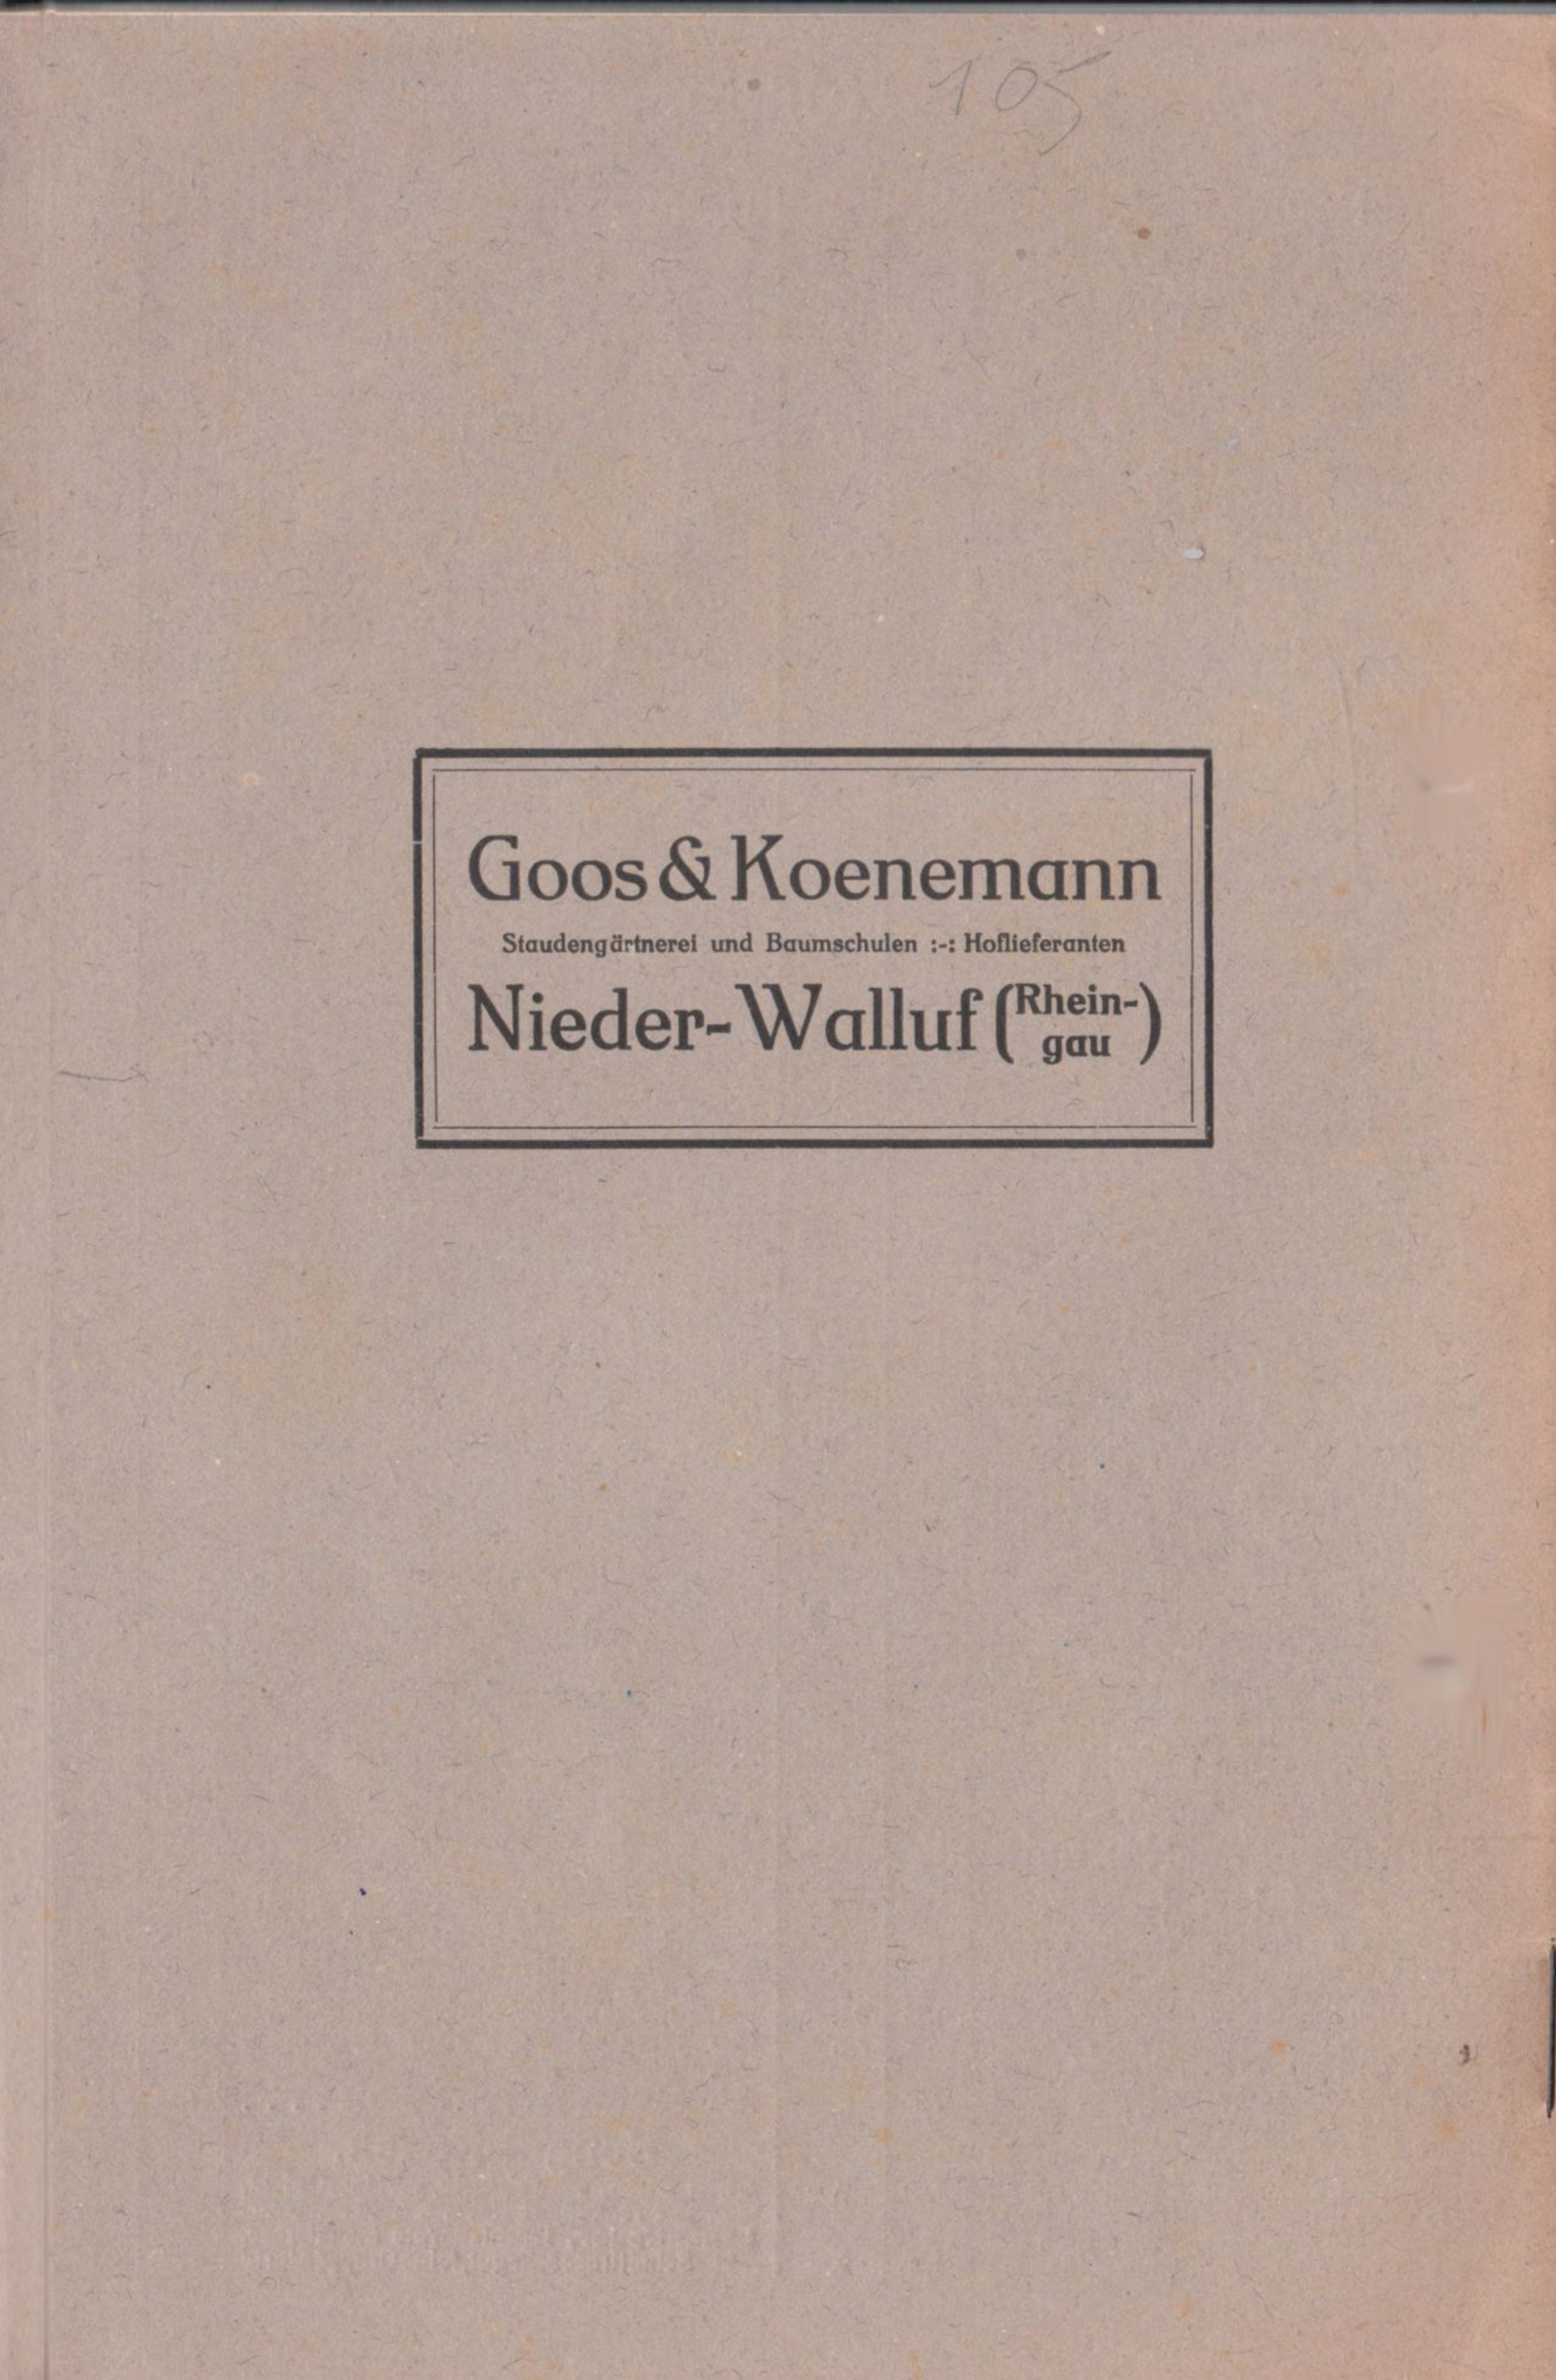 105
Goos & Koenemann
Staudengärtnerei und Baumschulen :-: Hoflieferanten
Nieder-Walluf (Rhein-
gau)